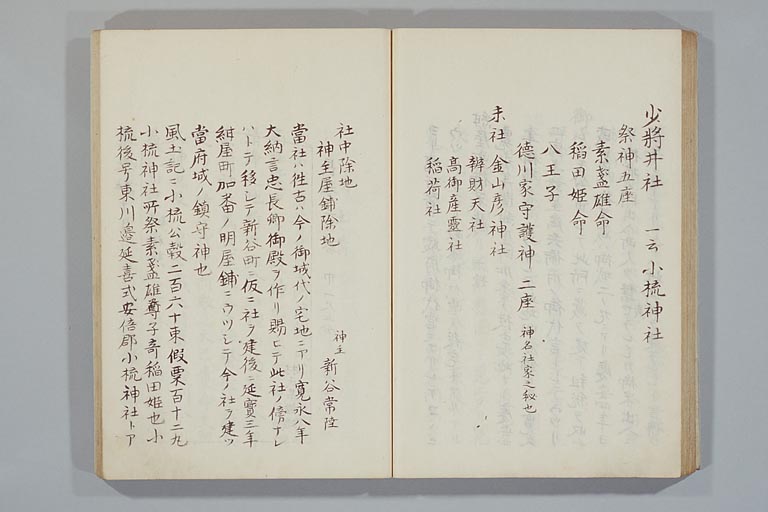 少將井社 一云 小梳神社
祭神五座
素盞雄命
稲田姫命
八王子
徳川家守護神 二座 神名社家之秘也
末社 金山彦神社
辨財天社
高御産靈社
稲荷社
社中除地
神主屋鋪除地
神主 新谷常陸
當社ハ徃古ハ今ノ御城代ノ宅地ニアリ寛永八年
大納言忠長卿御殿ヲ作リ賜ヒテ此社ノ傍ナレ
ハトテ移シテ新谷町ニ仮ニ社ヲ建後ニ延寳三年
紺屋町加番ノ明屋鋪ニウツシテ今ノ社ヲ建ツ
當府城ノ鎮守神也
風土記ニ小梳公穀二百六十束假粟百十二丸
小梳神社所祭素盞雄尊子奇稲田姫也小
梳後号東川邊延喜式安倍郡小梳神社トア